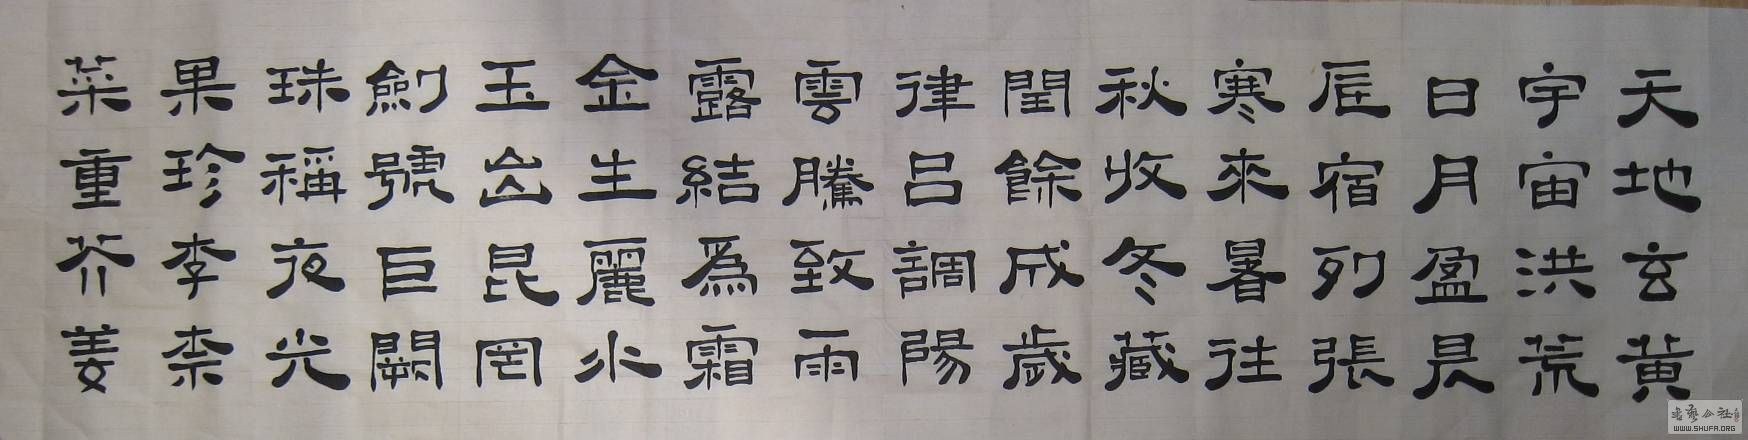 天地玄黃
宇宙洪荒
日月盈昃
辰宿列張
寒來暑往
秋收冬藏
閏餘成歲
律呂調陽
雲騰致雨
露結爲霜
金生麗水
玉出昆岡
劍號巨闕
珠稱夜光
果珍李柰
菜重芥姜
书艺公社
WWW.SHUFA.ORG